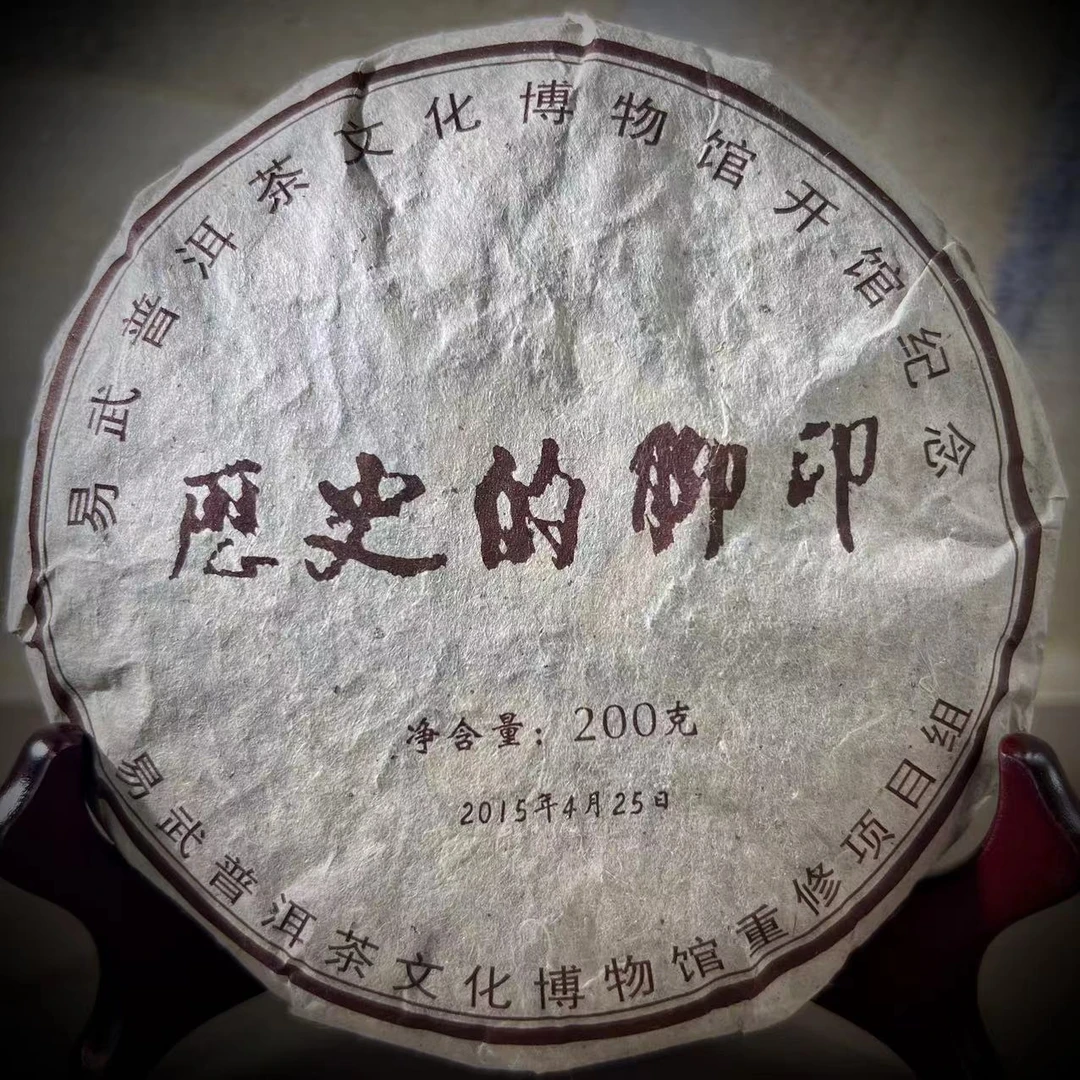 易武普洱茶文化博物馆开馆纪念
历史的脚印
净含量：200克
2015年4月25日
易武普洱茶文化博物馆重修项目组